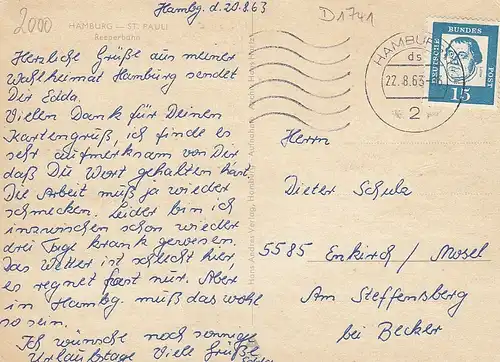 2000
HAMBURG — ST. PAULI
Reeperbahn
Hambg. d. 20.8.63
D1741
Herzliche Grüße aus meiner
Wahlheimat Hamburg sendet
Dir Edda.
Vielen Dank für Deinen
Kartengruß, ich finde es
sehr aufmerksam von Dir
daß Du Wort gehalten hast.
Die Arbeit muß ja wieder
schmecken. Leider bin ich
inzwischen schon wieder
drei Tage krank gewesen.
Das Wetter ist schlecht hier,
es regnet fast nur. Aber
in Hambg. muß das wohl
so sein.
Ich wünsche noch sonnige
Urlaubstage Viele Grüße
Hans Andres Verlag, Hamburg
HAMBURG
ds
22.8.63
2
DEUTSCHE BUNDESPOST
15
Herrn
Dieter Schulz
5585 Enkirch / Mosel
Am Steffensberg
bei Becker